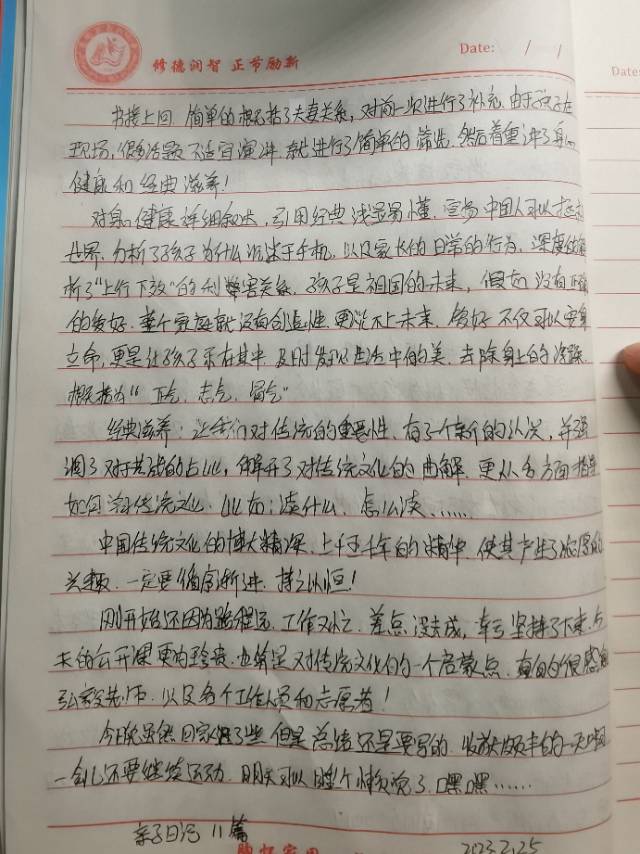 修德润智 正节励新
Date: / /
Date:
书接上回 简单的概括了夫妻关系, 对前一次进行了补充. 由于孩子在
现场, 很多话题不适宜演讲. 就进行了简单的筛选. 然后着重讲了身心
健康和经典滋养!
对身心健康详细叙述, 引用经典浅显易懂. 宣扬中国人可以
世界. 分析了孩子为什么沉迷于手机, 以及家长的日常的行为, 深度
析了"上行下效"的利弊害关系. 孩子是祖国的未来, 假如没有正确
的爱好. 整个家庭就没有创造性. 更说不上未来. 爱好不仅可以安身
立命, 更是让孩子乐在其中. 及时发现生活中的美. 去除身上的浮躁.
概括为"正气, 志气, 骨气"
经典滋养: 让我们对传统的重要性. 有了一个新的认识, 并强
调了对于其他的占比, 解开了对传统文化的曲解. 更从各方面指导
如何学习传统文化. 比如: 读什么, 怎么读......
中国传统文化的博大精深. 上下五千年的精华. 使其产生了浓厚的
兴趣. 一定要循序渐进. 持之以恒!
刚开始还因为路程远. 工作又忙. 差点没去成, 幸亏坚持了下来. 今
天的公开课更为珍贵. 也算是对传统文化的一个启蒙点. 真的很感恩
老师. 以及各个工作人员和志愿者!
今晚虽然回家晚了些 但是总结还是要写的. 收获颇丰的一天
一会儿还要继续运动. 明天可以睡个懒觉了. 嘿嘿......
亲子日记 11篇
2023.2.25